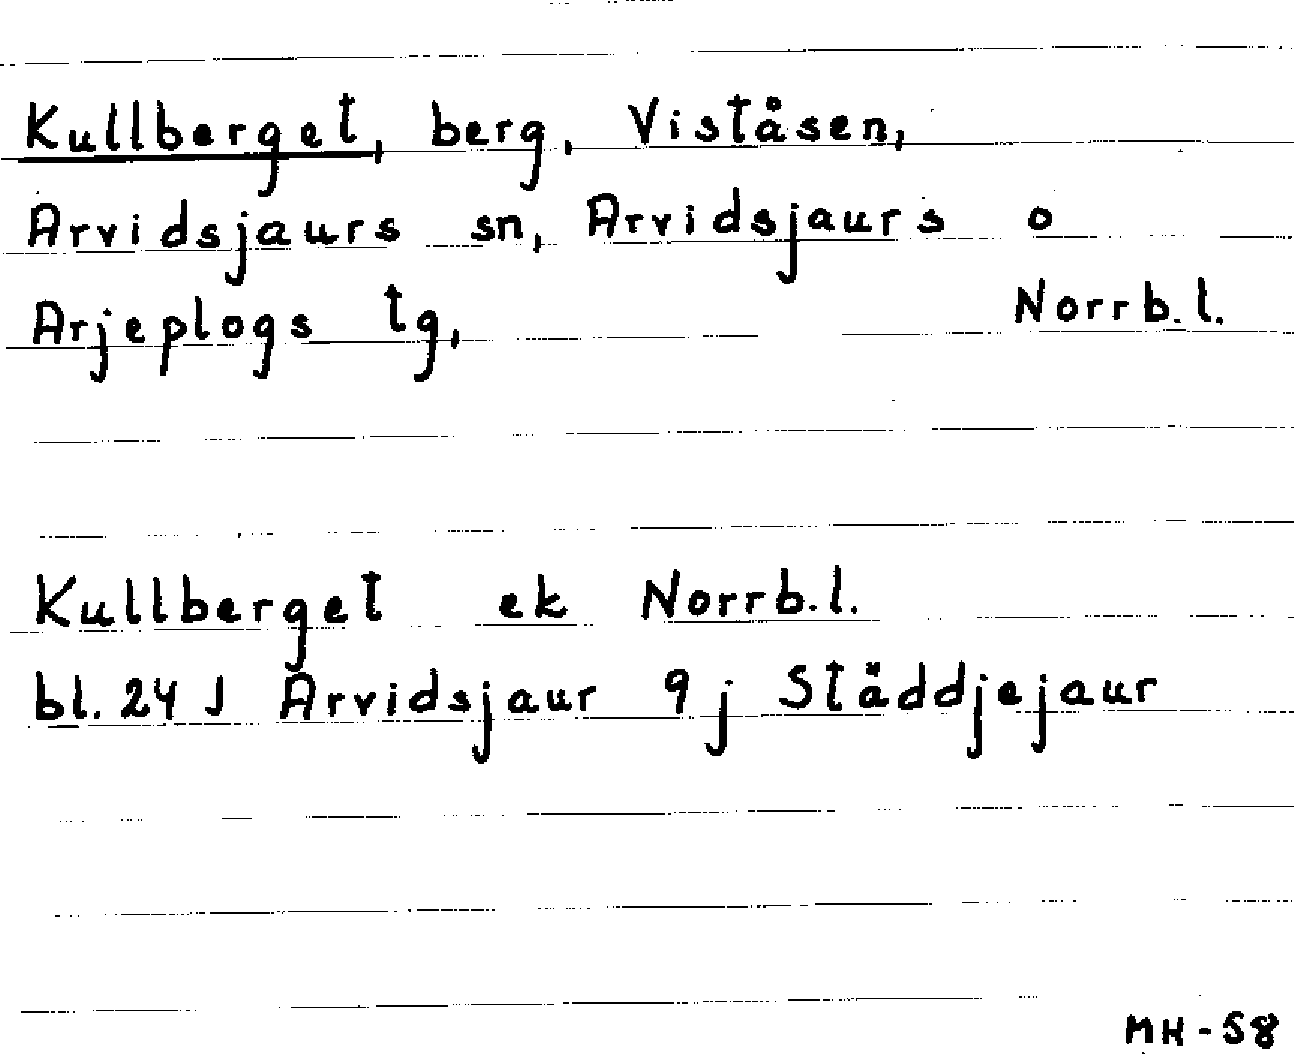 Kullberget, berg, Viståsen,
Arvidsjaurs sn, Arvidsjaurs o
Arjeplogs tg, Norrb.l.
Kullberget ek Norrb.l.
bl. 24 J Arvidsjaur 9 j Ståddjejaur
MH-58